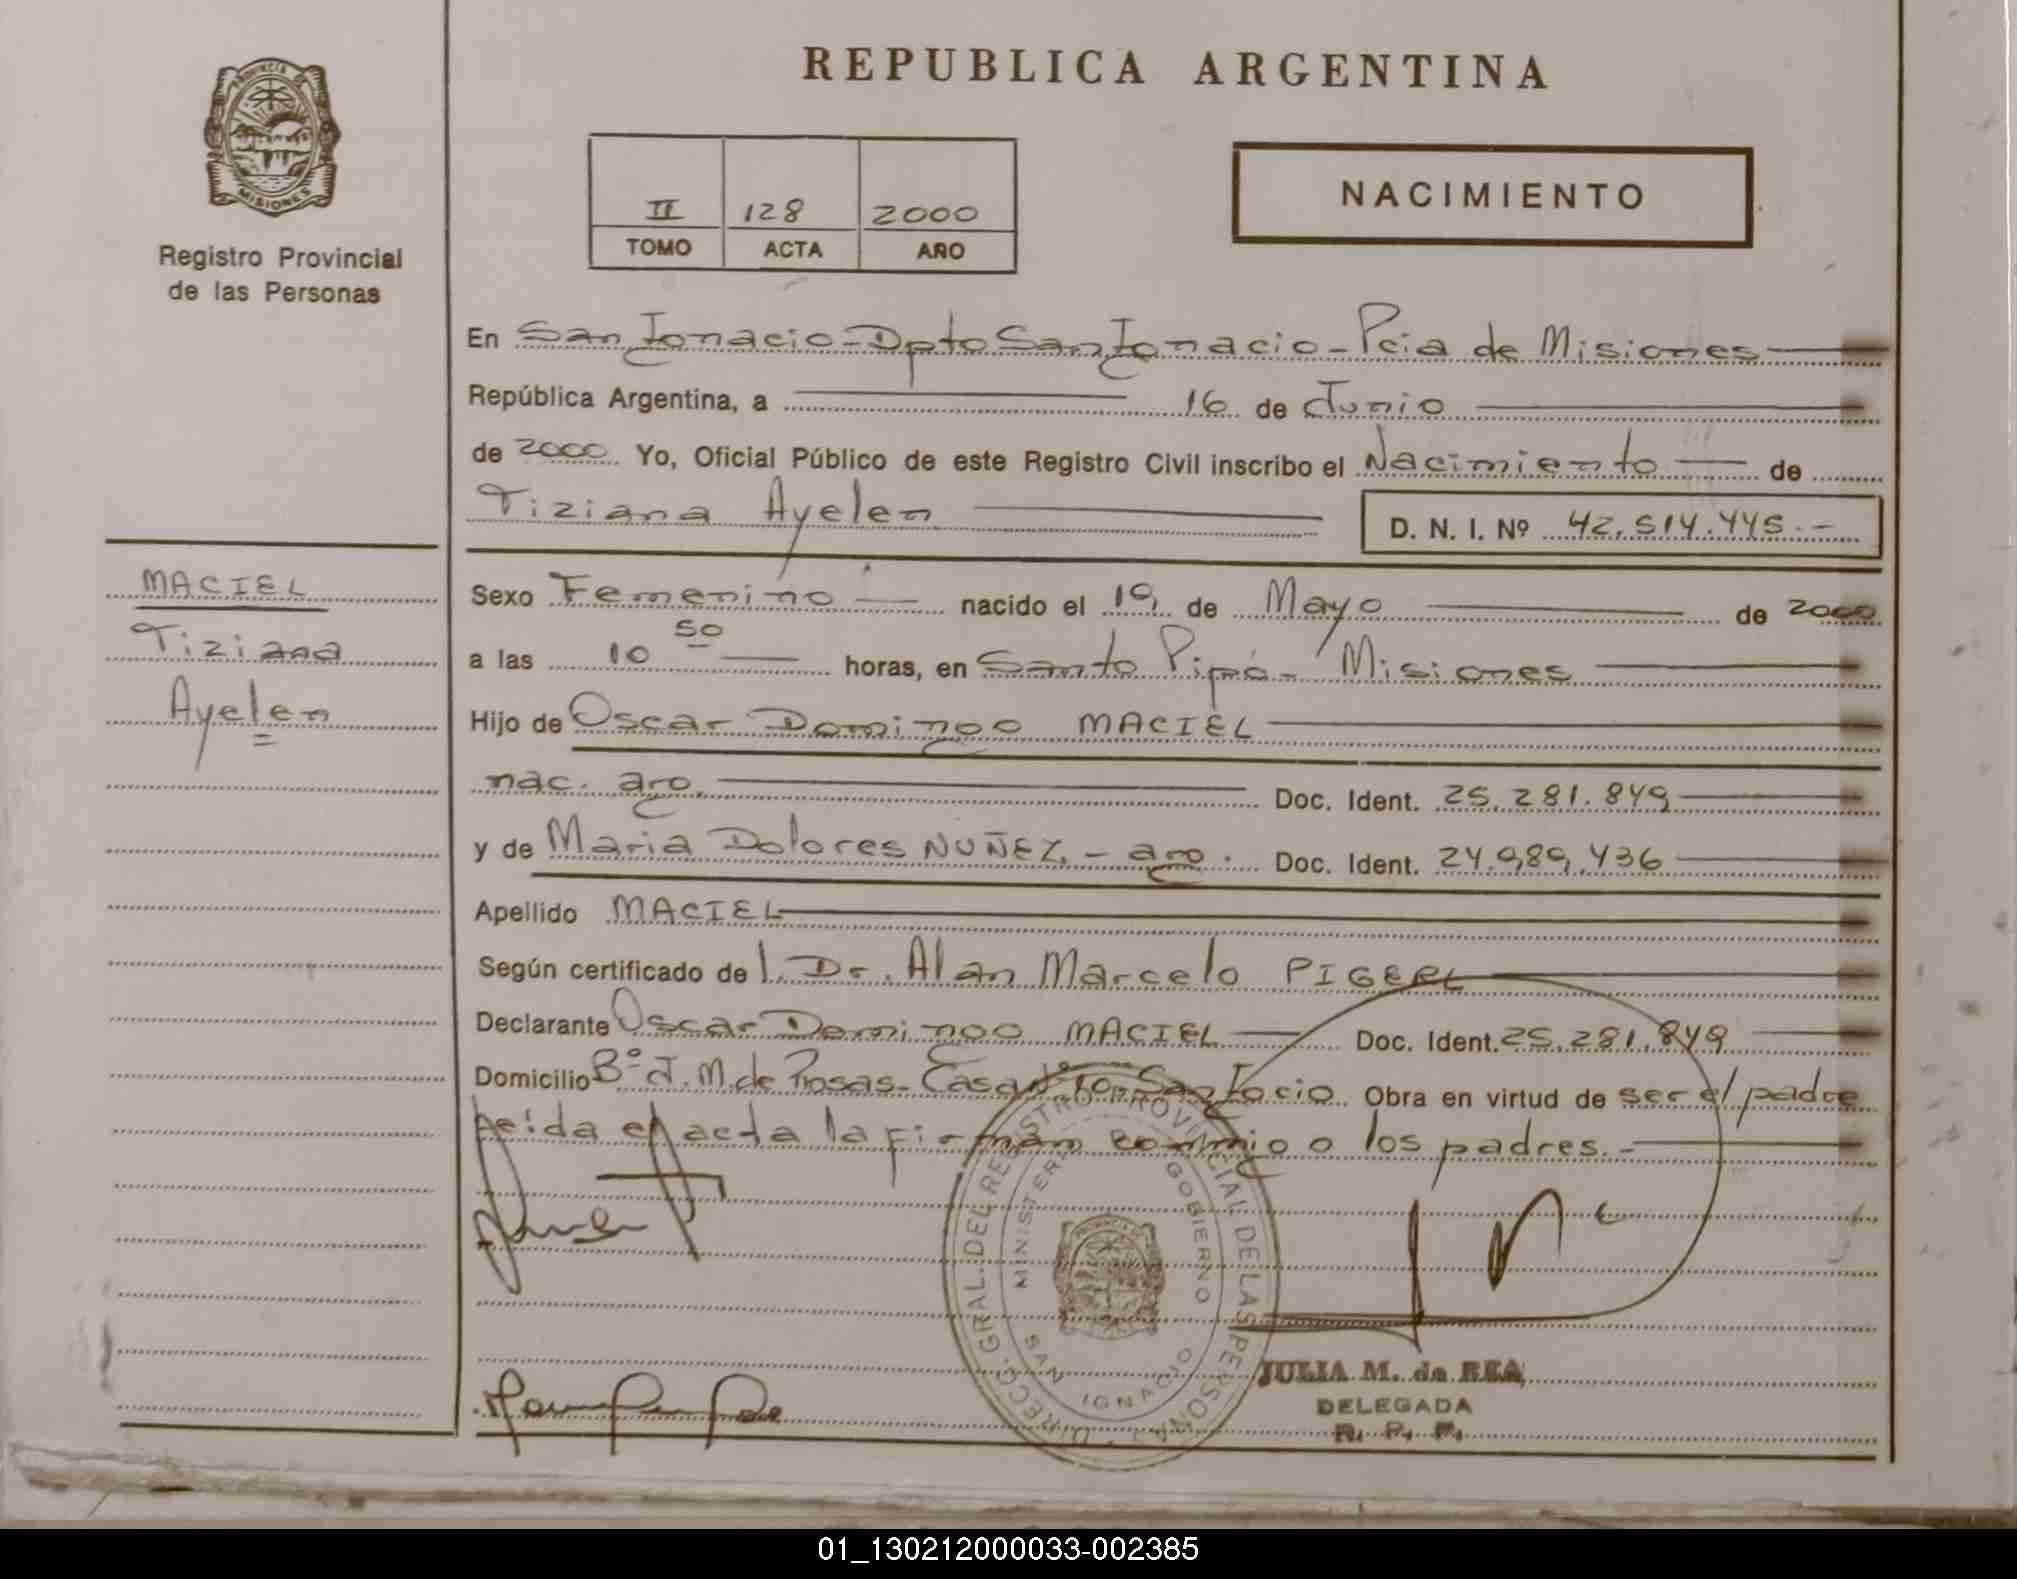 REPUBLICA ARGENTINA
PROVINCIA DE
MISIONES
Registro Provincial
de las Personas
II 128 2000
TOMO ACTA AÑO
NACIMIENTO
En San Ignacio - Dpto San Ignacio - Pcia de Misiones
República Argentina, a 16 de Junio
de 2000 Yo, Oficial Público de este Registro Civil inscribo el Nacimiento de
Tiziana Ayelen
D. N. I. Nº 42.514.445.-
MACIEL
Tiziana
Ayelen
Sexo Femenino nacido el 19 de Mayo de 2000
a las 10 50 horas, en Santo Pipó - Misiones
Hijo de Oscar Domingo MACIEL
nac. arg. Doc. Ident. 25.281.849
y de Maria Dolores NUÑEZ. - arg. Doc. Ident. 24.989.436
Apellido MACIEL
Según certificado de l. Dr. Alan Marcelo PIGERL
Declarante Oscar Domingo MACIEL Doc. Ident. 25.281.849
Domicilio Bº J. M. de Rosas - Casa Nº 10 - San Igcio. Obra en virtud de ser el padre
Leida el acta la firman conmigo los padres.-
DIRECC. GRAL. DEL REGISTRO PROVINCIAL DE LAS PERSONAS
MINISTERIO GOBIERNO
SAN IGNACIO
JULIA M. de REA
DELEGADA
R. P. P.
01_130212000033-002385